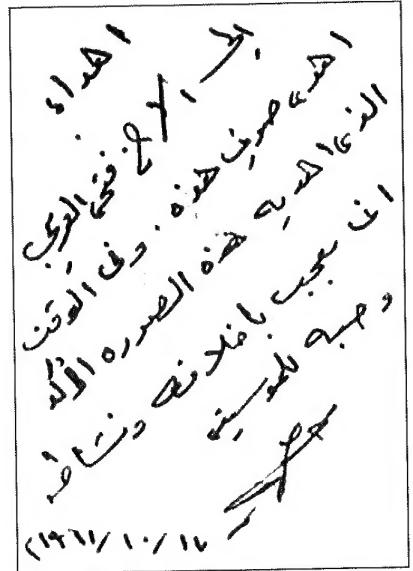 اهداء
إلى الأخ فتحي الغريب
اهدي صورتي هذه. وفي الوقت
الذي اهديه هذه الصورة اذكر
اني معجب باخلاقه ونشاطه
وحبه للموسيقى
١٩٦١/١٠/١٧